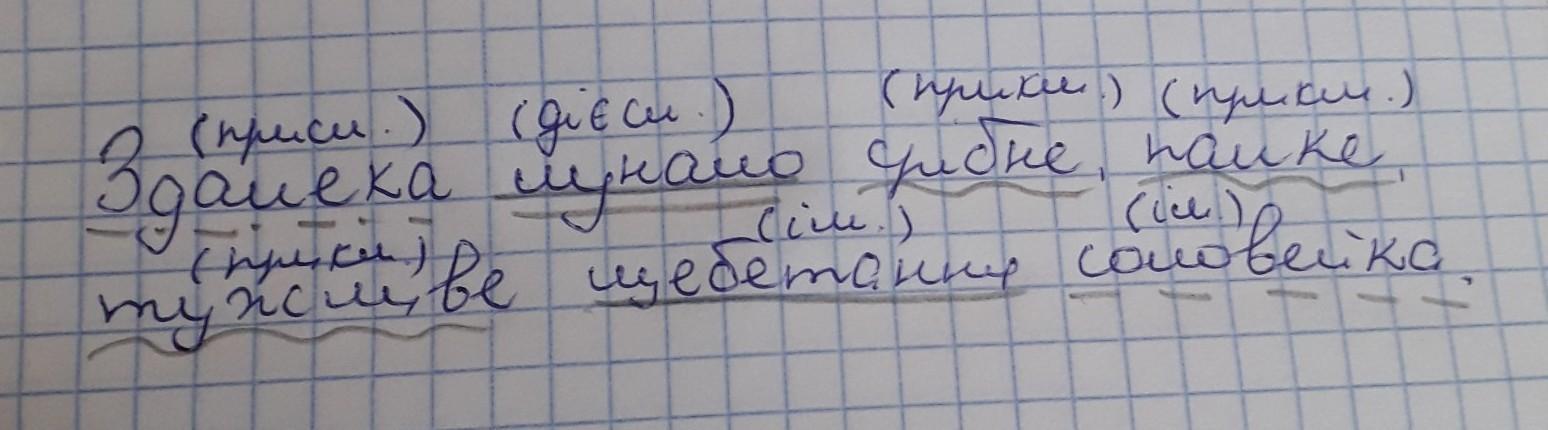 (присл.) (дієсл.) (прикм.) (прикм.)
Здалека лунало дрібне, палке,
(прикм.) (ім.) (ім.)
тужливе щебетання соловейка.